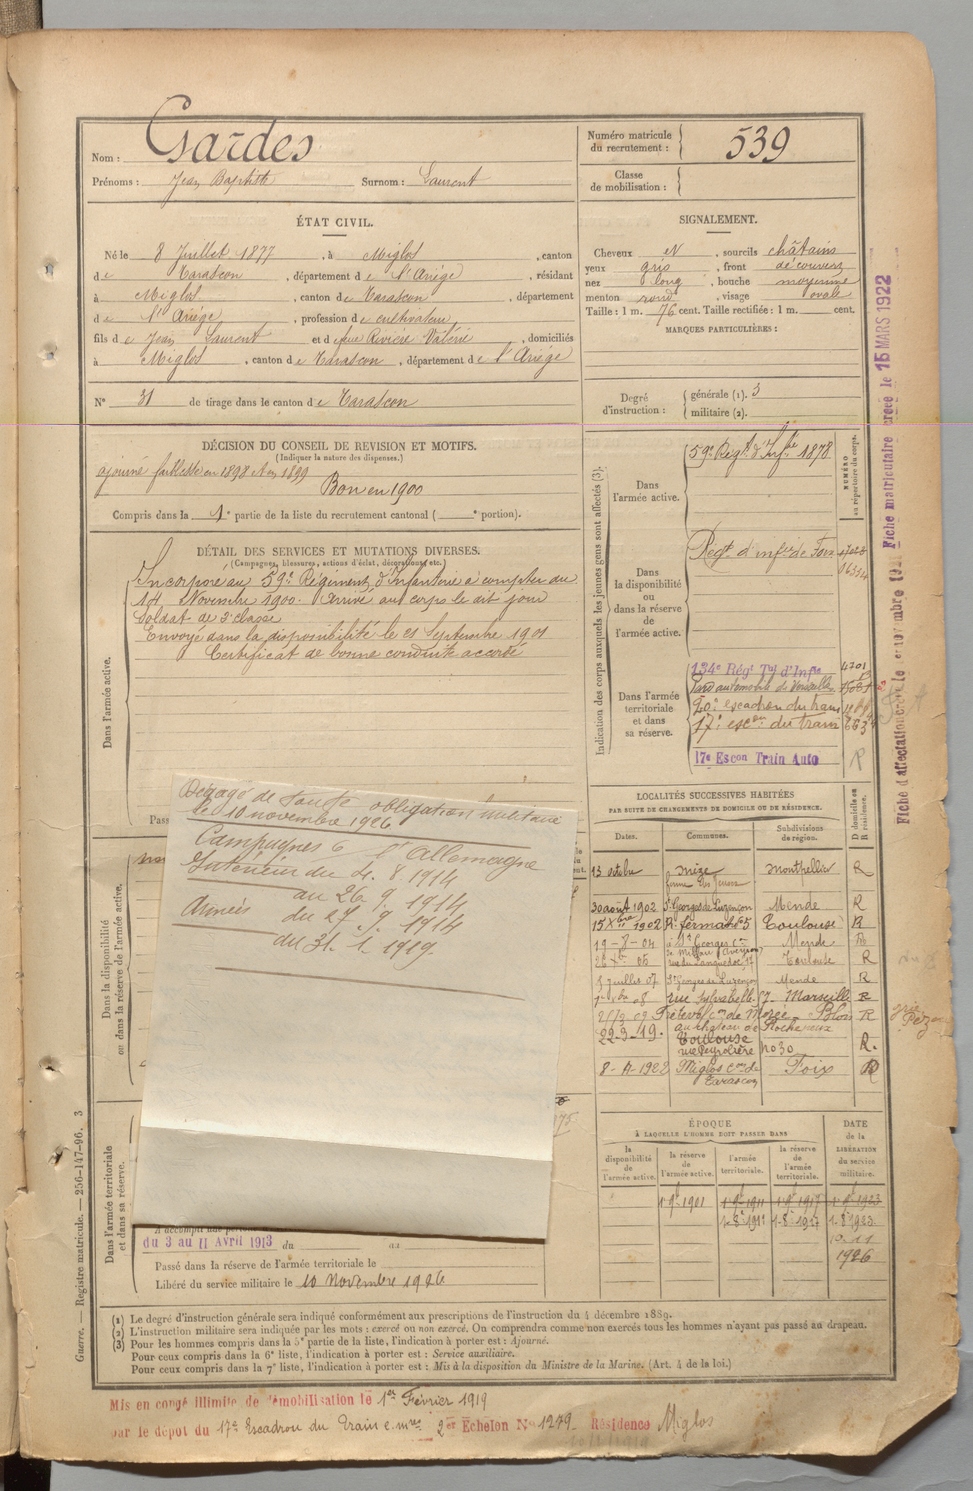 Nom : Gardes
Prénoms : Jean Baptiste Surnom : Laurent
Numéro matricule du recrutement : 539
Classe de mobilisation :
ÉTAT CIVIL.
Né le 8 Juillet 1877, à Miglos, canton
de Tarascon, département de l'Ariège, résidant
à Miglos, canton de Tarascon, département
de l'Ariège, profession de cultivateur
fils de Jean Laurent et de feue Rivière Valérie, domiciliés
à Miglos, canton de Tarascon, département de l'Ariège
N° 31 de tirage dans le canton de Tarascon
SIGNALEMENT.
Cheveux et, sourcils châtains
yeux gris, front découvert
nez long, bouche moyenne
menton rond, visage ovale
Taille : 1 m. 76 cent. Taille rectifiée : 1 m. cent.
MARQUES PARTICULIÈRES :
Degré d'instruction : générale (1). 3
militaire (2).
DÉCISION DU CONSEIL DE REVISION ET MOTIFS.
(Indiquer la nature des dispenses.)
ajourné faiblesse en 1898 et en 1899
Bon en 1900
Compris dans la 1e partie de la liste du recrutement cantonal ( e portion).
DÉTAIL DES SERVICES ET MUTATIONS DIVERSES.
(Campagnes, blessures, actions d'éclat, décorations, etc.)
Dans l'armée active.
Incorporé au 59e Régiment d'Infanterie à compter du
14 Novembre 1900. Arrivé au corps le dit jour
Soldat de 2e classe
Envoyé dans la disponibilité le 21 Septembre 1901
Certificat de bonne conduite accordé
Pass
Dégagé de toute obligation militaire
le 10 novembre 1926
Campagnes c l'Allemagne
Intérieur du 4. 8. 1914
au 26. 9. 1914
Armées du 27. 9. 1914
au 31. 1. 1919.
Dans la disponibilité ou dans la réserve de l'armée active.
Dans l'armée territoriale et dans sa réserve.
du 3 au 11 Avril 1913 du au
Passé dans la réserve de l'armée territoriale le
Libéré du service militaire le 10 novembre 1926
Indication des corps auxquels les jeunes gens sont affectés (3).
NUMÉRO au répertoire du corps.
Dans l'armée active.
59e Régt d'Infie 1878
Dans la disponibilité ou dans la réserve de l'armée active.
Régt d'infie de Foix
Dans l'armée territoriale et dans sa réserve.
134e Régt Tal d'Infie
Parc automobile de Versailles
20e escadron du train
17e escon du train
17e Escon Train Auto
R
LOCALITÉS SUCCESSIVES HABITÉES
PAR SUITE DE CHANGEMENTS DE DOMICILE OU DE RÉSIDENCE.
Dates. Communes. Subdivisions de région. D domicile ou R résidence.
13 octobre Mèze Montpellier R
30 août 1902 St Georges de Luzençon Mende R
15 Xbre 1902 R. fermat no 5 Toulouse R
19-8-04 à St Georges Mende R
05 rue du Languedoc 17 Toulouse R
5 juillet 07 St Georges de Luzençon Mende R
08 rue Sylvabelle 57 Marseille R
09 Fréteval con de Morée Blois R
au château de Rochevaux
22-3-19. Toulouse
rue Peyrolière no 30 R.
8-4-1922 Miglos con de Tarascon Foix R
ÉPOQUE
À LAQUELLE L'HOMME DOIT PASSER DANS
la disponibilité de l'armée active. la réserve de l'armée active. l'armée territoriale. la réserve de l'armée territoriale. DATE de la LIBÉRATION du service militaire.
1-9-1901 1-9-1911 1-9-1917 1-9-1923
1-8-1911 1-8-1917 1-8-1923
10-11
1926
(1) Le degré d'instruction générale sera indiqué conformément aux prescriptions de l'instruction du 4 décembre 1889.
(2) L'instruction militaire sera indiquée par les mots : exercé ou non exercé. On comprendra comme non exercés tous les hommes n'ayant pas passé au drapeau.
(3) Pour les hommes compris dans la 5e partie de la liste, l'indication à porter est : Ajourné.
Pour ceux compris dans la 6e liste, l'indication à porter est : Service auxiliaire.
Pour ceux compris dans la 7e liste, l'indication à porter est : Mis à la disposition du Ministre de la Marine. (Art. 4 de la loi.)
Mis en congé illimité de démobilisation le 1er Février 1919
par le dépôt du 17e Escadron du Train 2er Echelon No 1279 Résidence Miglos
Guerre. — Registre matricule. — 256-147-96. 3
Fiche d'affectation créée le 1er novembre 1921 Fiche matriculaire créée le 15 MARS 1922